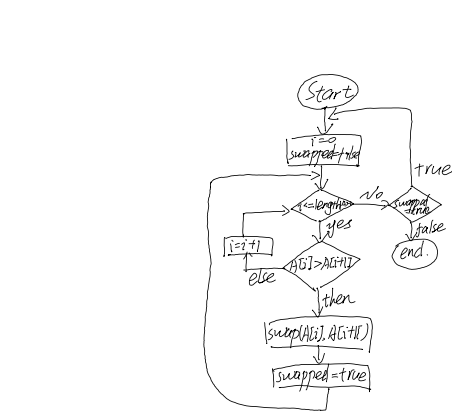 Start
i=0
swapped=false
i<=length
No
swapped
=true
true
false
end.
yes
i=i+1
A[i]>A[i+1]
else
then
swap(A[i],A[i+1])
swapped=true